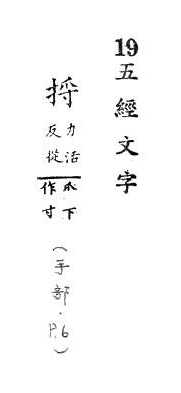 19五經文字
捋
力活
反從
爪下
作寸
(手部·P.6)